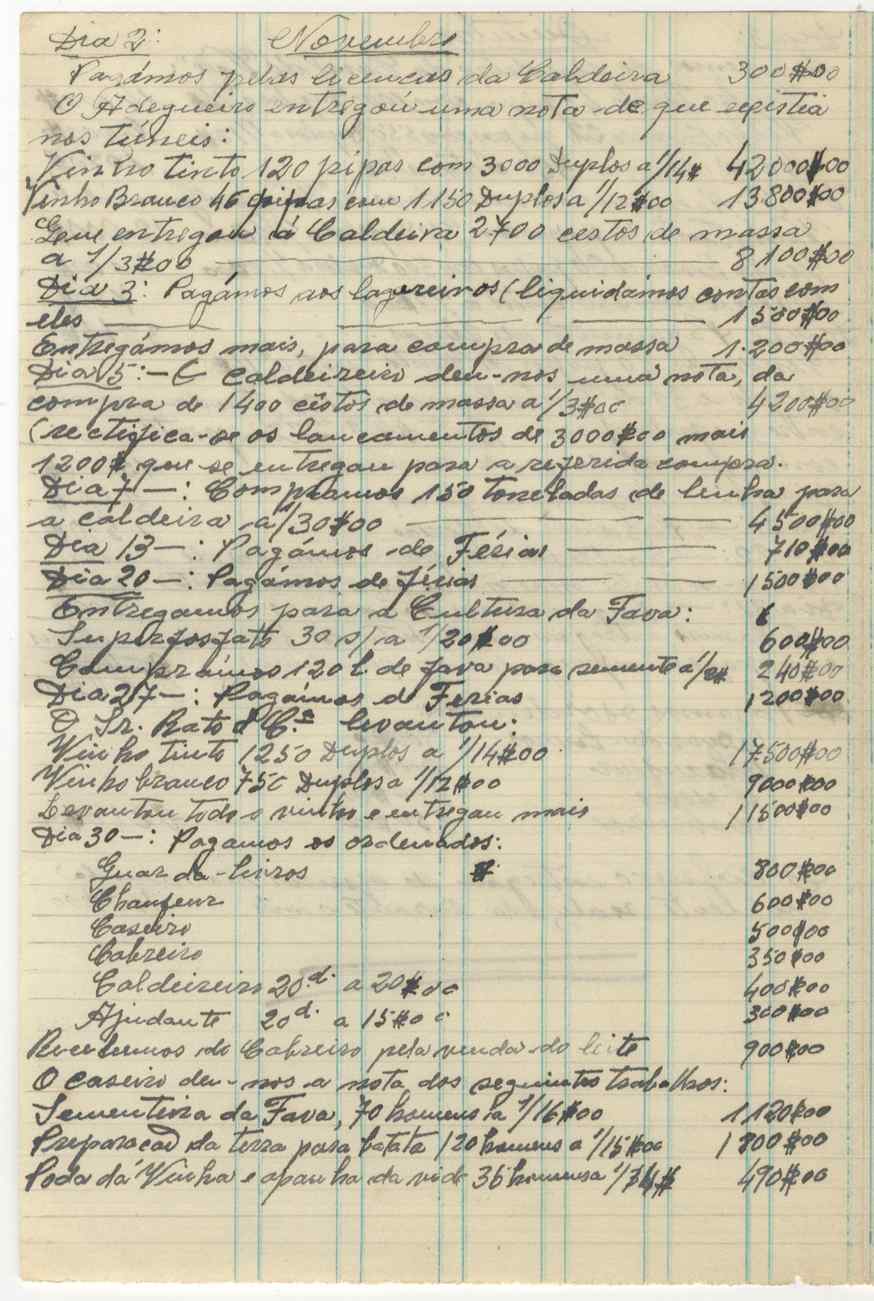 Dia 2: Novembro
Pagámos pelas licenças da Caldeira 300$00
O Adegueiro entregou uma nota de que existia
nos túneis:
Vinho tinto 120 pipas com 3000 Duplos a 1/14$ 42000$00
Vinho Branco 46 pipas com 1150 Duplos a 1/12$00 13800$00
Que entregou á Caldeira 2700 cestos de massa
a 1/3$00 8100$00
Dia 3: Pagámos aos lagareiros (liquidámos contas com
eles 1500$00
Entregámos mais, para compra de massa 1.200$00
Dia 5:- O Caldeireiro deu-nos uma nota, da
compra de 1400 cestos de massa a 1/3$00 4200$00
(rectifica-se os lançamentos de 3000$00 mais
1200$ que se entregou para a referida compra.
Dia 7-: Comprámos 150 toneladas de lenha para
a caldeira a 1/30$00 4500$00
Dia 13-: Pagámos de Férias 710$00
Dia 20-: Pagámos de férias 1500$00
Entregamos para a Cultura da Fava:
Superfosfato 30 s/ a 1/20$00 600$00
Comprámos 120 l. de fava para semente á 1/2$ 240$00
Dia 27-: Pagámos de Ferias 1200$00
O Sr. Rato & C.ª levantou:
Vinho tinto 1250 Duplos a 1/14$00 17500$00
Vinho branco 750 Duplos a 1/12$00 9000$00
Levantou todo o vinho e entregou mais 11500$00
Dia 30-: Pagamos os ordenados:
Guarda-livros $ 800$00
Chaufeur 600$00
Caseiro 500$00
Cabreiro 350$00
Caldeireiro 20 d. a 20$00 400$00
Ajudante 20 d. a 15$00 300$00
Recebemos do Cabreiro pela venda do leite 900$00
O caseiro deu-nos a nota dos seguintes trabalhos:
Sementeira da Fava, 70 homens a 1/16$00 1120$00
Preparação da terra para batata 120 homens a 1/15$00 1800$00
Poda dá Vinha e apanha da vide 35 homens a 1/14$ 490$00